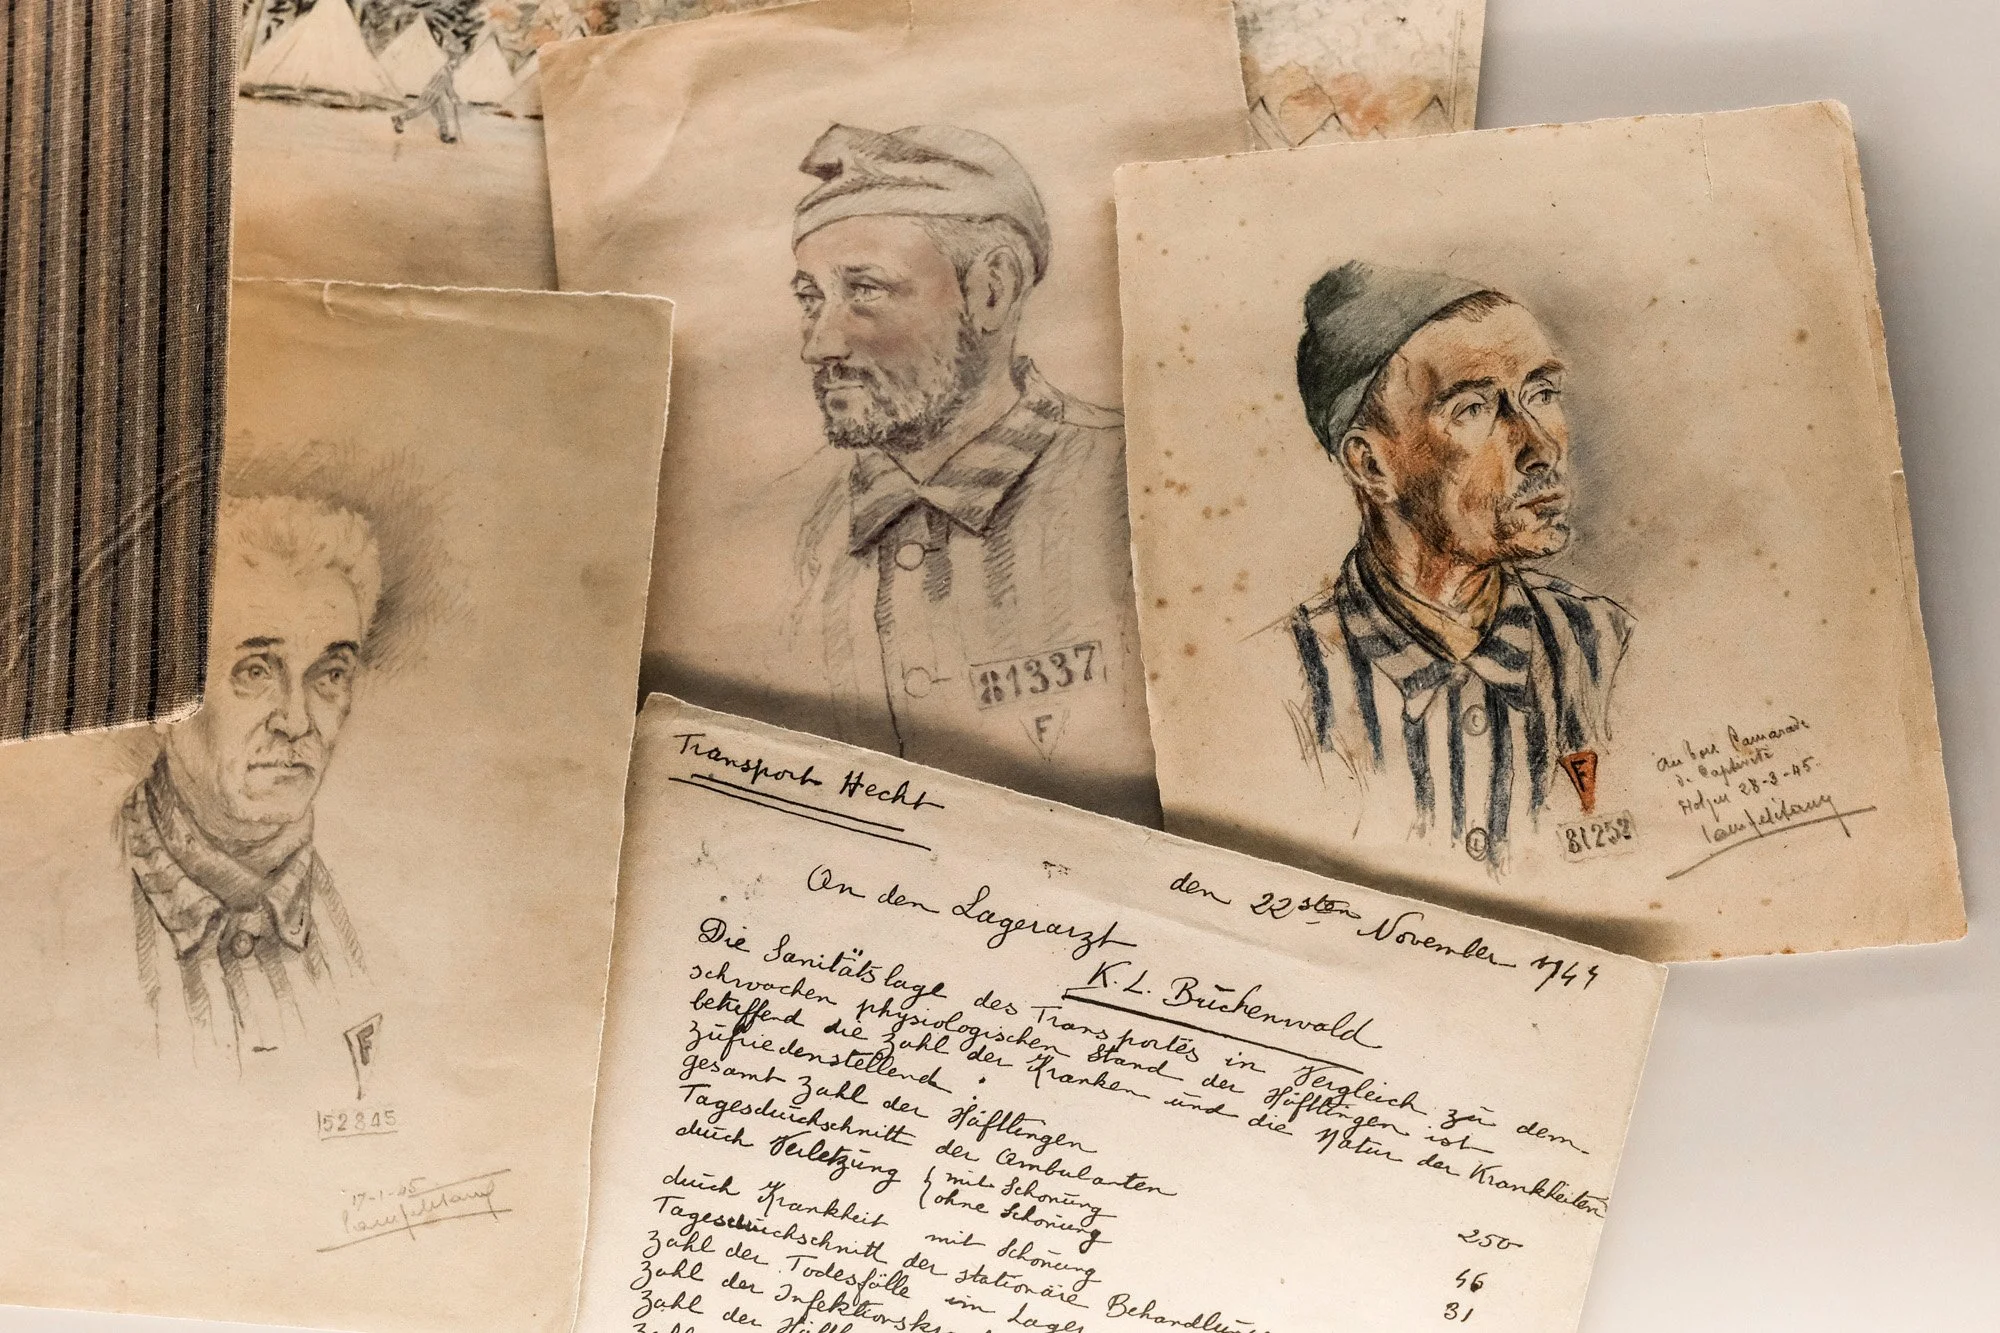 81337
F
F
81252
Au bon Camarade
de Captivité
Holzen 28-3-45
F
152845
17-1-45
Transport Hecht
den 22sten November 1944
An den Lagerarzt
K. L. Buchenwald
Die Sanitätslage des Transportes in Vergleich zu dem
schwachen physiologischen Stand der Häftlingen ist
betreffend die Zahl der Kranken und die Natur der Krankheiten
zufriedenstellend.
gesamt Zahl der Häftlingen 250
Tagesduchschnitt der Ambulanten
duch Verletzung mit Schonung 46
ohne Schonung 31
duch Krankheit mit Schonung
Tagesduchschnitt der stationäre Behandlung
Zahl der Todesfälle im Lager
Zahl der
Zahl der